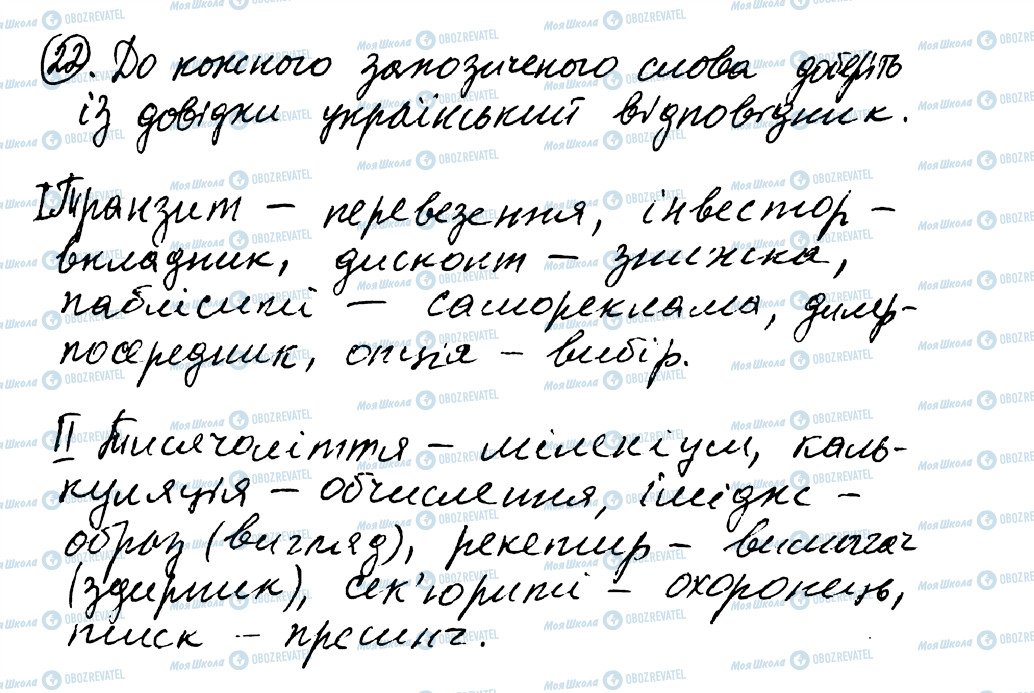 22. До кожного запозиченого слова доберіть
із довідки український відповідник.
I Транзит – перевезення, інвестор –
вкладник, дисконт – знижка,
пабліситі – самореклама, дилер-
посередник, опція – вибір.
II Тисячоліття – міленіум, каль-
куляція – обчислення, імідж –
образ (вигляд), рекетир – вимагач
(здирник), сек'юриті – охоронець,
тиск – пресинг.